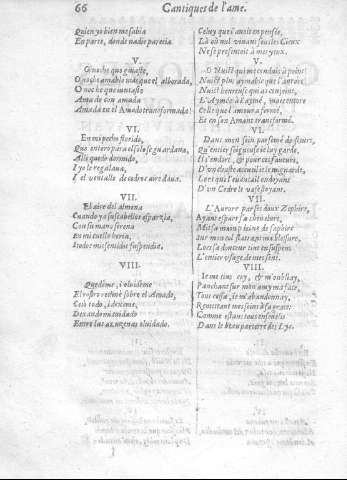 66 Cantiques de l'ame.
Quien yo bien me sabia
En parte, donde nadie parecia.
V.
O noche que guiaste,
O noche amable mas que el alborada,
O noche que iuntaste
Amado con amada
Amada en el Amado transformada!
VI.
En mi pecho florido,
Que entero para el solo se guardaua,
Alli quedó dormido,
I yo le regalaua,
I el ventalle de cedros aire daua.
VII.
El aire del almena
Quando ya sus cabellos esparzia,
Con su mano serena
En mi cuello heria,
I todos mis sentidos suspendia.
VIII.
Quedeme, i oluideme
El rostro recliné sobre el Amado,
Cesó todo, i dexeme,
Dexando mi cuidado
Entre las azuzenas oluidado.
Celuy que i'auois en pensée,
Là où nul viuant sous les Cieux
Ne se presentoit à mes yeux.
V.
O Nuict qui me conduis à poinct!
Nuict plus aymable que l'aurore!
Nuict heureuse qui as conjoint,
L'Aymée à l'aymé,
Et celle que l'amour a formé,
Et en son Amant transformé.
VI.
Dans mon sein parsemé de fleurs,
Qu'entier soigneuse ie luy garde,
Il s'endort, & pour ces faueurs,
D'vn chaste accueil ie le mignarde,
Lors que l'éuantail ondoyant
D'vn Cedre le va festoyant.
VII.
L'Aurore par ses doux Zephirs,
Ayant espars sa cheuelure,
Mit sa main
Sur mon col
Lors sa douceur tint en suspens
L'entier vsage de mes sens.
VIII.
Ie me tins coy, & m'oublay,
Panchant sur mon amy ma face,
Tout cessa, ie m'abandonnay,
Remettant mes soins à sa grace:
Comme estans tous enseuelis
Dans le beau parterre des Lys.